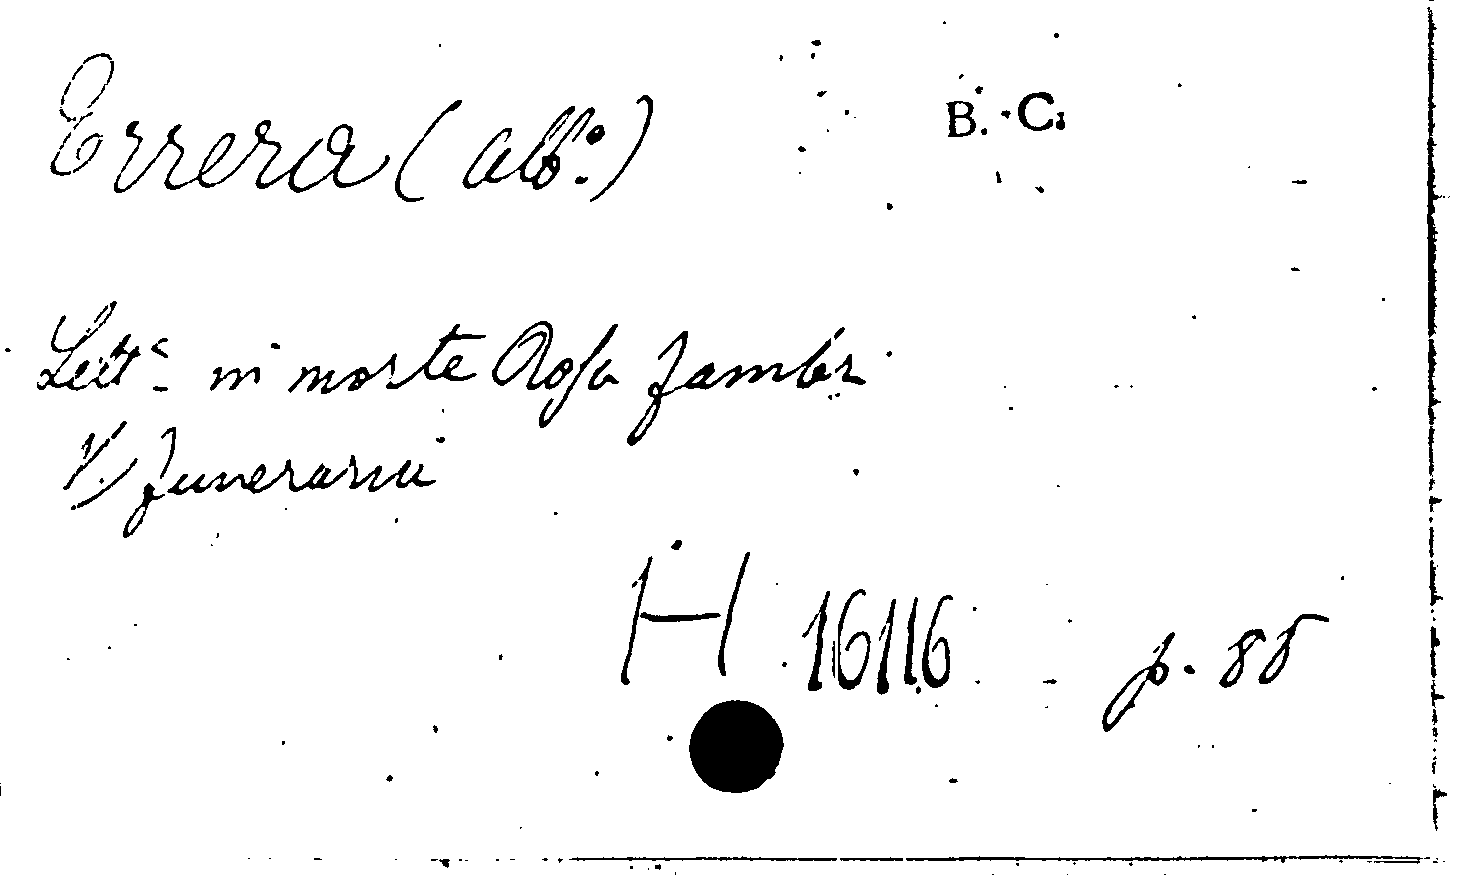 Errera (abb.º)
B. C.
Lettᵉ in morte Rosa Zambr
V. Funerarii
H 16116 - p. 85